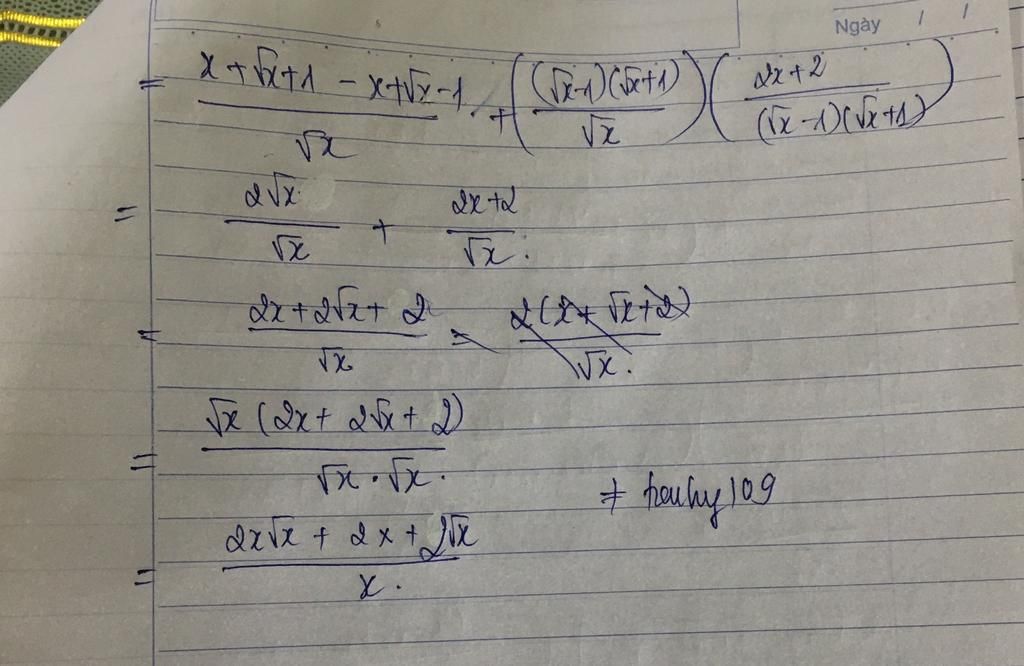 Ngày / /
= (x + √x + 1 - x + √x - 1)/√x + ((√x - 1)(√x + 1)/√x) ((2x + 2)/((√x - 1)(√x + 1)))
= 2√x/√x + (2x + 2)/√x .
= (2x + 2√x + 2)/√x = 2(x + √x + 2)/√x .
= √x (2x + 2√x + 2)/(√x . √x) .
# hanhy109
= (2x√x + 2x + 2√x)/x .